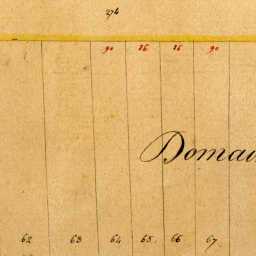 274
90 76 76 90
Domai
62 63 64 65 66 67